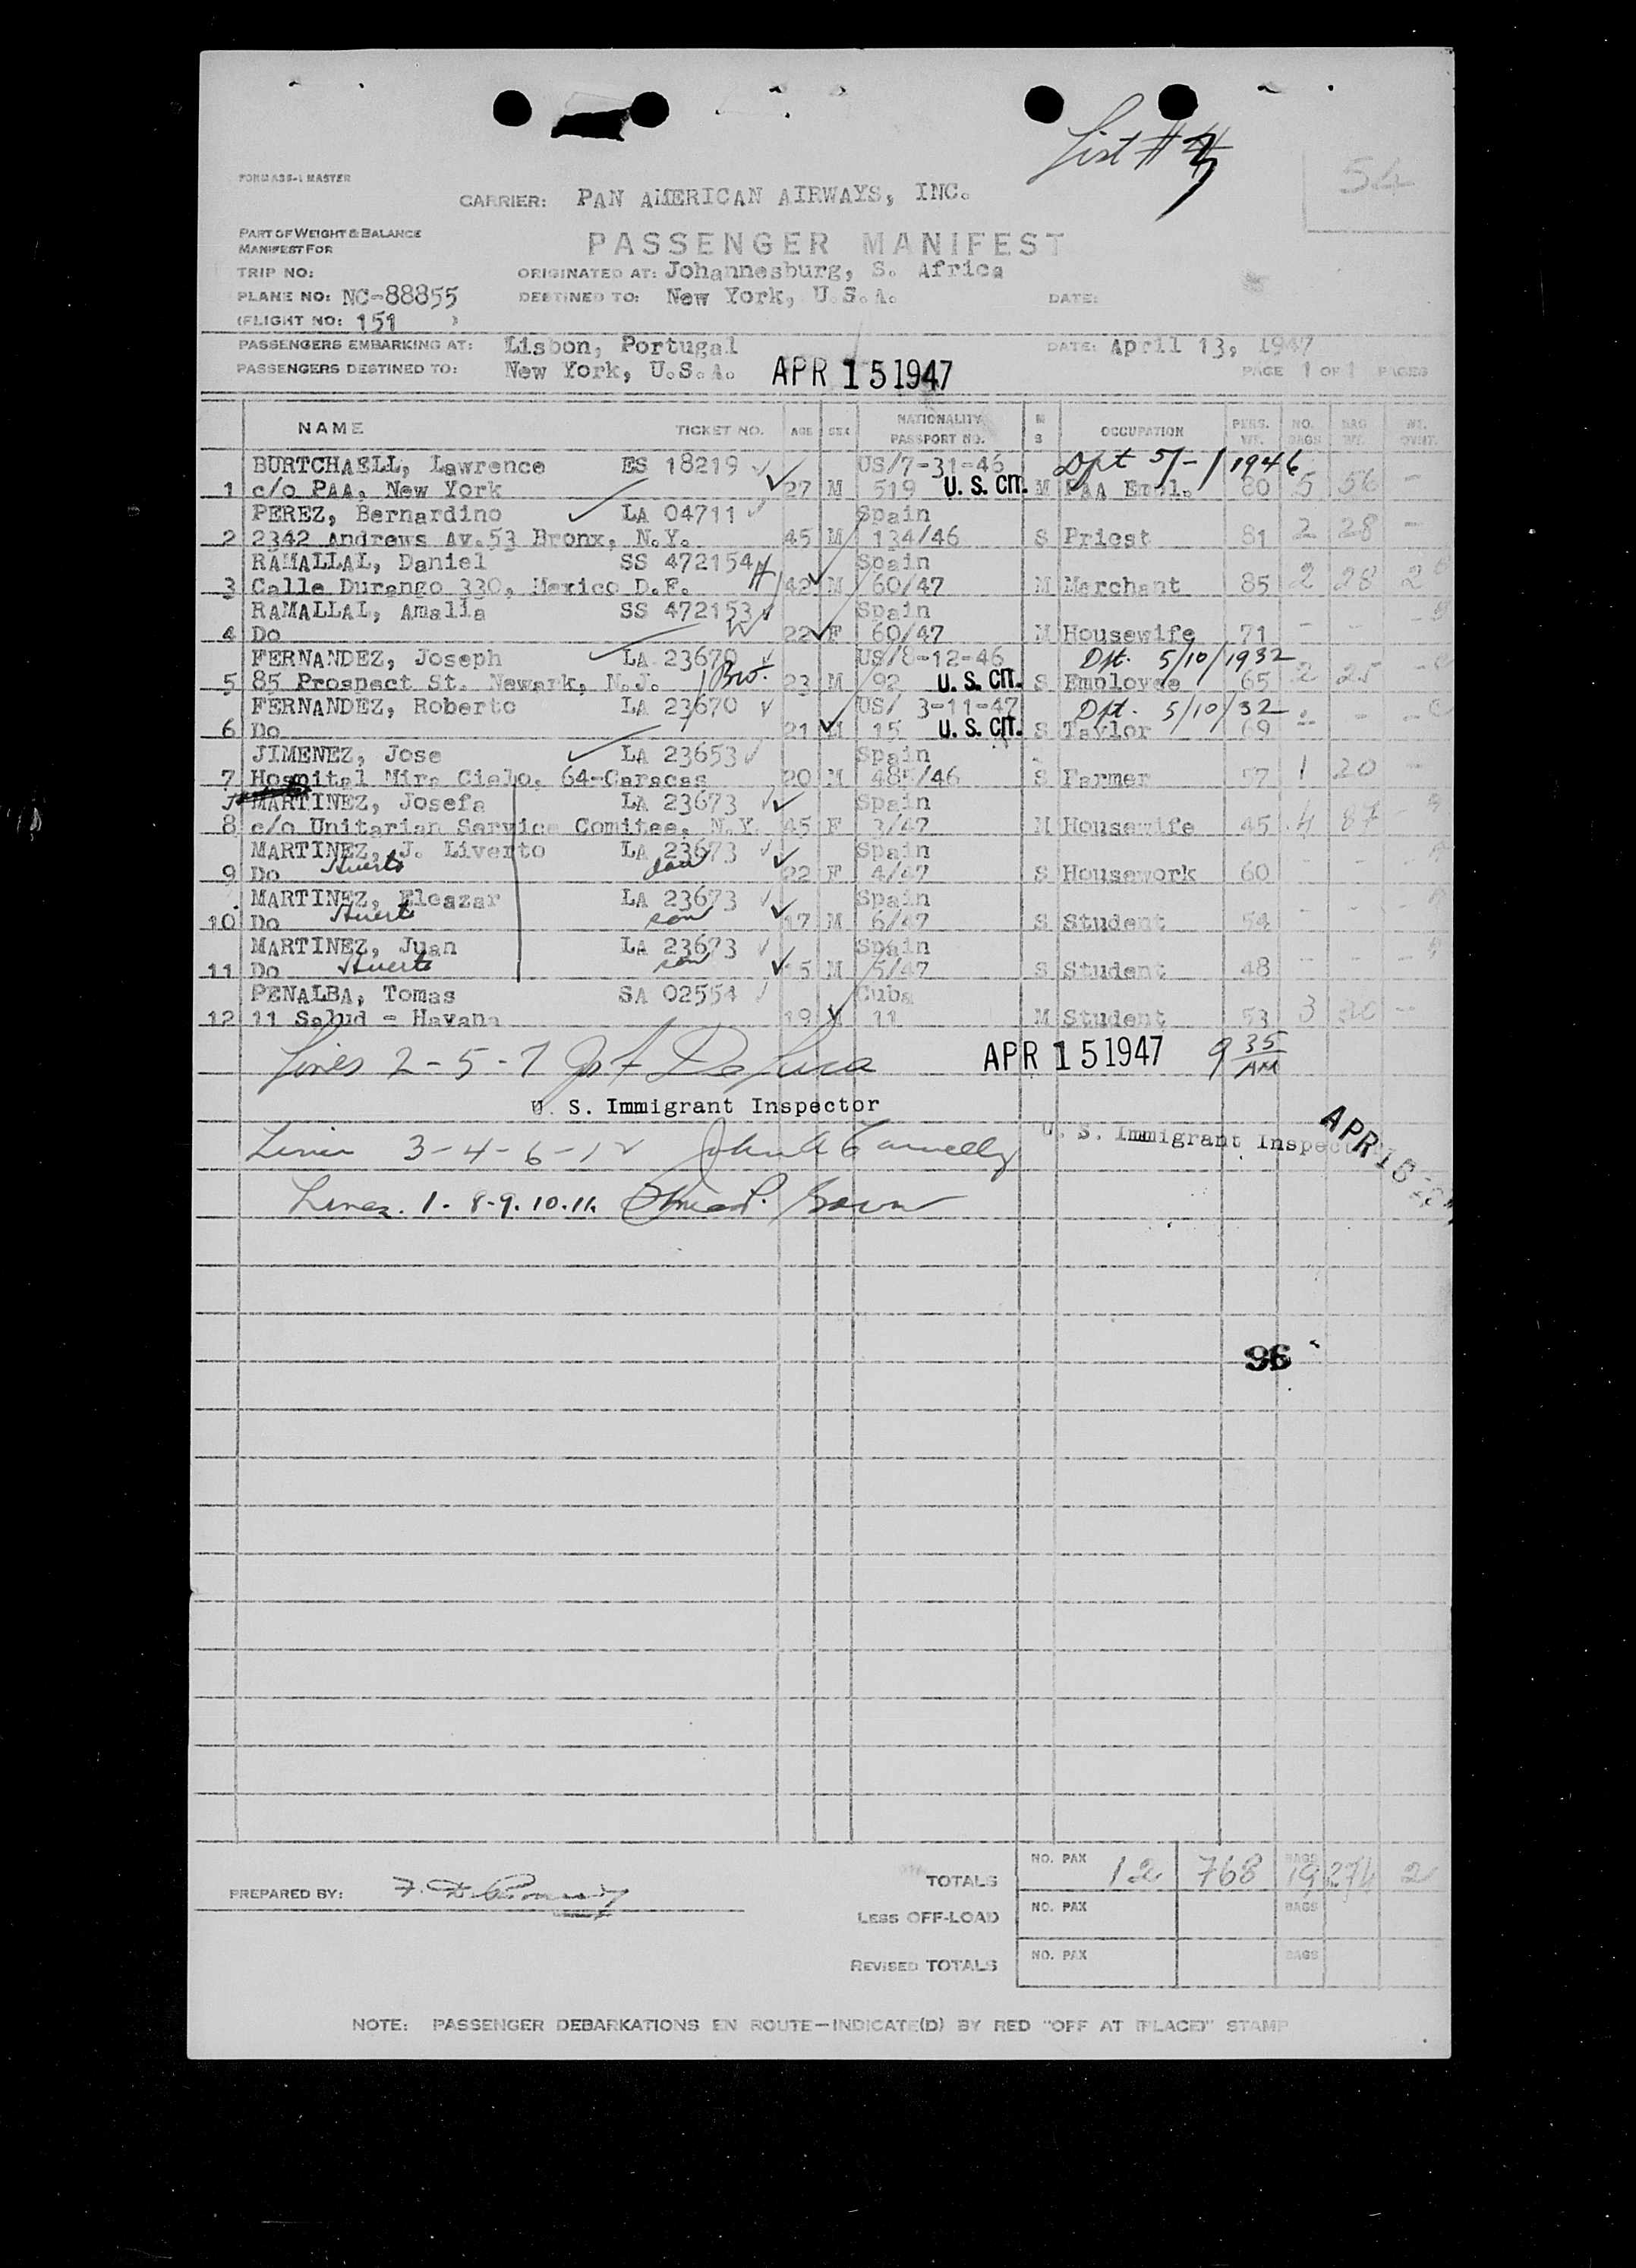 List #
54
FORM A35-1 MASTER
CARRIER: PAN AMERICAN AIRWAYS, INC.
PART OF WEIGHT & BALANCE
MANIFEST FOR
PASSENGER MANIFEST
TRIP NO: ORIGINATED AT: Johannesburg, S. Africa
PLANE NO: NC-88855 DESTINED TO: New York, U.S.A. DATE:
(FLIGHT NO: 151 )
PASSENGERS EMBARKING AT: Lisbon, Portugal DATE: April 13, 1947
PASSENGERS DESTINED TO: New York, U.S.A. APR 15 1947 PAGE 1 OF 1 PAGES
NAME TICKET NO. AGE SEX NATIONALITY PASSPORT NO. M S OCCUPATION PERS. WT. NO. BAGS BAG WT. WT. OVWT.
BURTCHAELL, Lawrence ES 18219 US/7-31-46 Dpt 5/-/1946
1 c/o PAA, New York 27 M 519 U. S. CIT. M PAA Empl. 80 5 56 -
PEREZ, Bernardino LA 04711 Spain
2 2342 Andrews Av. 53 Bronx, N.Y. 45 M 134/46 S Priest 81 2 28 -
RAMALLAL, Daniel SS 472154 H Spain
3 Calle Durango 330, Mexico D.F. 42 M 60/47 M Merchant 85 2 28 2
RAMALLAL, Amalia SS 472153 W Spain
4 Do 22 F 60/47 M Housewife 71 - - -
FERNANDEZ, Joseph LA 23670 US/8-12-46 Dpt. 5/10/1932
5 85 Prospect St. Newark, N.J. Bro. 23 M 92 U. S. CIT. S Employee 65 2 25 -
FERNANDEZ, Roberto LA 23670 US/ 3-11-47 Dpt. 5/10/32
6 Do 21 M 15 U. S. CIT. S Taylor 69 - - -
JIMENEZ, Jose LA 23653 Spain
7 Hospital Mira Cielo, 64-Caracas 20 M 485/46 S Farmer 57 1 20 -
MARTINEZ, Josefa LA 23673 Spain
8 c/o Unitarian Service Comitee, N.Y. 45 F 3/47 M Housewife 45 4 87 -
MARTINEZ, J. Liverto LA 23673 Spain
9 Do Huerto dau 22 F 4/47 S Housework 60 - - -
MARTINEZ, Eleazar LA 23673 Spain
10 Do Huerto son 17 M 6/47 S Student 54 - - -
MARTINEZ, Juan LA 23673 Spain
11 Do Huerto son 15 M 5/47 S Student 48 - - -
PENALBA, Tomas SA 02554 Cuba
12 11 Salud - Havana 19 M 11 M Student 53 3 30 -
Lines 2-5-7 APR 15 1947 9 35 AM
U. S. Immigrant Inspector
Lines 3-4-6-12 John A U. S. Immigrant Inspector APR 15
Lines. 1. 8-9. 10. 11.
96
PREPARED BY:
TOTALS NO. PAX 12 768 BAGS 19 274 2
LESS OFF-LOAD NO. PAX BAGS
REVISED TOTALS NO. PAX BAGS
NOTE: PASSENGER DEBARKATIONS EN ROUTE—INDICATE(D) BY RED "OFF AT (PLACE)" STAMP